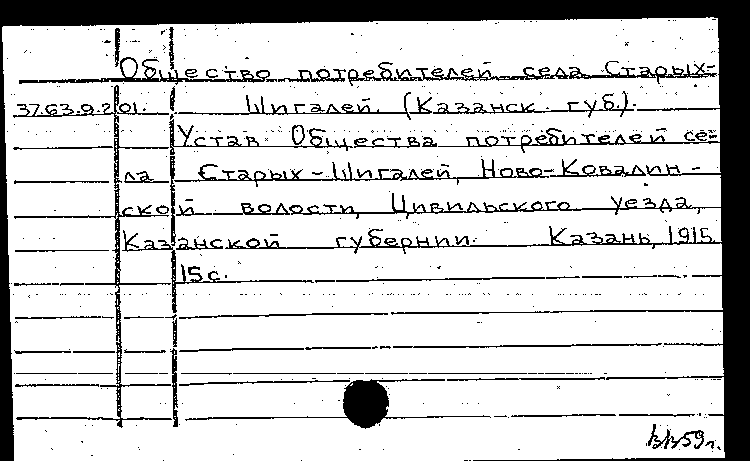 Общество потребителей села Старых-
37.63.9.201. Шигалей. (Казанск. губ.).
Устав Общества потребителей се=
ла Старых-Шигалей, Ново-Ковалин-
ской волости, Цивильского уезда,
Казанской губернии. Казань, 1915
15 с.